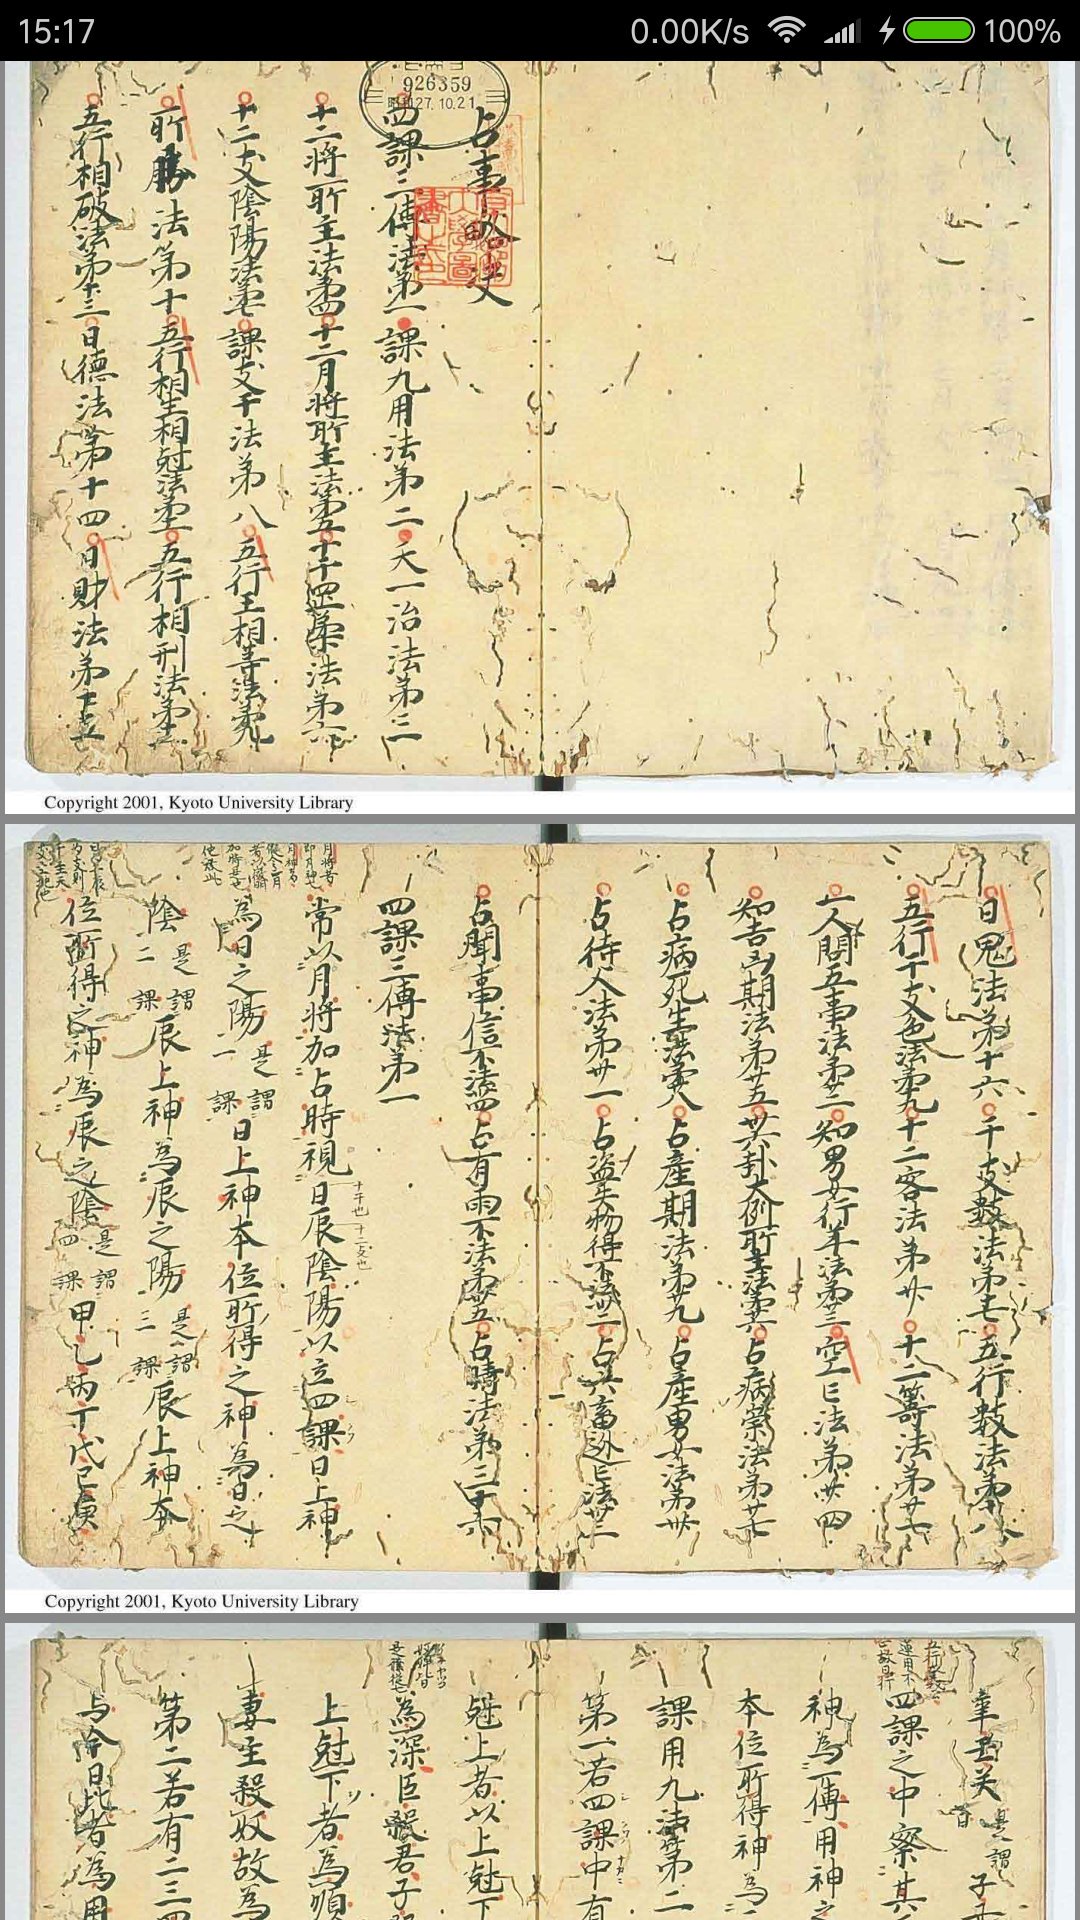 15:17
0.00K/s
100%
926359
昭和27.10.21
占事略决
四課三傳法第一 課九用法第二 天一治法第三
十二將所主法第四 十二月將所主法第五 十干罡柔法第六
十二支陰陽法第七 課支干法第八 五行王相等法第九
所勝法第十 五行相生相尅法第十一 五行相刑法第十二
五行相破法第十三 日德法第十四 日財法第十五
Copyright 2001, Kyoto University Library
日鬼法第十六 干支數法第十七 五行數法第十八
五行干支色法第十九 十二客法第廿 十二籌法第廿一
一人問五事法第廿二 知男女行年法第廿三 空亡法第廿四
知吉凶期法第廿五 卅六卦大例所主法第廿六 占病祟法第廿七
占病死生法第廿八 占產期法第廿九 占產男女法第卅
占待人法第卅一 占盜失物得不法卅二 占六畜逃亡法卅三
占聞事信不法卅四 占有雨不法第卅五 占晴法第三十六
四課三傳法第一
常以月將加占時視日辰陰陽以立四課日上神
十干也 十二支也
為日之陽 是謂一課 日上神本位所得之神為日之
陰 是謂二課 辰上神為辰之陽 是謂三課 辰上神本
位所得之神為辰之陰 是謂四課 甲乙丙丁戊己庚
Copyright 2001, Kyoto University Library
四課之中察其
神為一傳用神之
本位所得神為
課用九法第二
第一若四課中有
尅上者以上尅下
為深臣殺君子
上尅下者為順
妻主殺奴故為
第二若有二三四
与今日比者為用